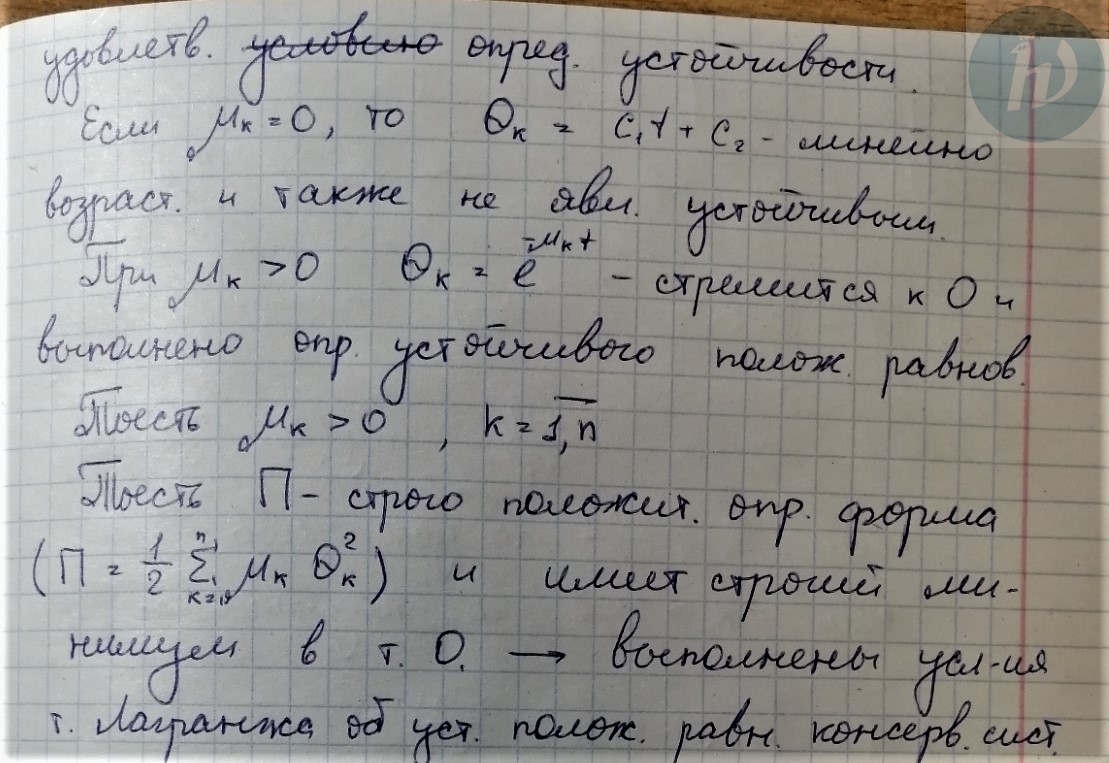 удовлетв. условию опред. устойчивости.
Если μₖ = 0, то θₖ = C₁t + C₂ - линейно
возраст. и также не явл. устойчивым.
При μₖ > 0 θₖ = e^(-μₖt) - стремится к 0 и
выполнено опр. устойчивого полож. равнов.
Тоесть μₖ > 0 , k = 1,n
Тоесть П - строго положит. опр. форма
(П = 1/2 Σ μₖ θₖ²) и имеет строгий ми-
нимум в т. O. → выполнены усл-ия
т. Лагранжа об уст. полож. равн. консерв. сист.